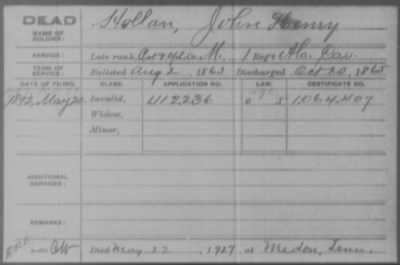 DEAD
NAME OF SOLDIER: Hollan, John Henry
SERVICE: Late rank, Co. M, 1 Reg't Ala. Cav.
TERM OF SERVICE: Enlisted Aug 2, 1863 Discharged Oct 20, 1865
DATE OF FILING. CLASS. APPLICATION NO. LAW. CERTIFICATE NO.
1892, May 20 Invalid, 1112236 1.064.407
Widow,
Minor,
ADDITIONAL SERVICES:
REMARKS:
Died May 22, 1927, at Medon, Tenn.